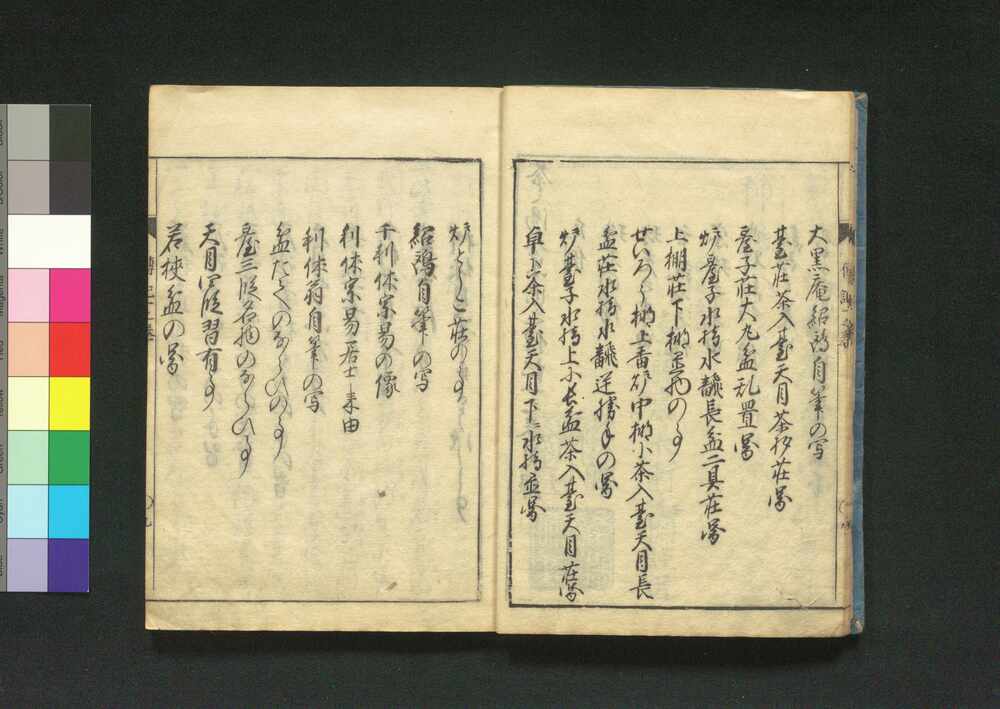 大黒庵紹鴎自筆の写
臺荘茶入臺天目茶杓荘図
臺子荘大丸盆乱置図
炉臺子水指水飜長盆二具荘図
上棚荘下棚並初の事
せいろう棚上香炉中棚小茶入臺天目長
盆荘水指水飜逆勝手の図
炉臺子水指上ニ長盆茶入臺天目荘図
卓上茶入臺天目下ニ水指並図
炉とうこ荘の事
紹鴎自筆の写
千利休宗易の像
利休宗易居士来由
利休翁自筆の写
盆だての習ひの事
臺三段名物のならひの事
天目四段習有事
若狭盆の図